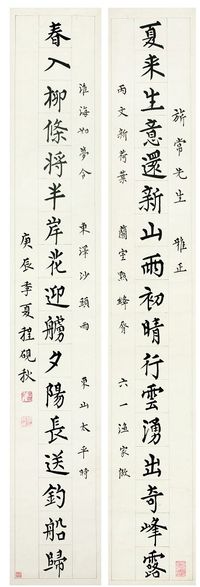 旂常先生 雅正
夏来生意還新山雨初晴行雲湧出奇峰露
新荷葉 蘭室點絳脣 六一漁家傲
春入柳條將半岸花迎艣夕陽長送釣船歸
淮海如夢令 東澤沙頭雨 東山太平時
庚辰季夏程硯秋